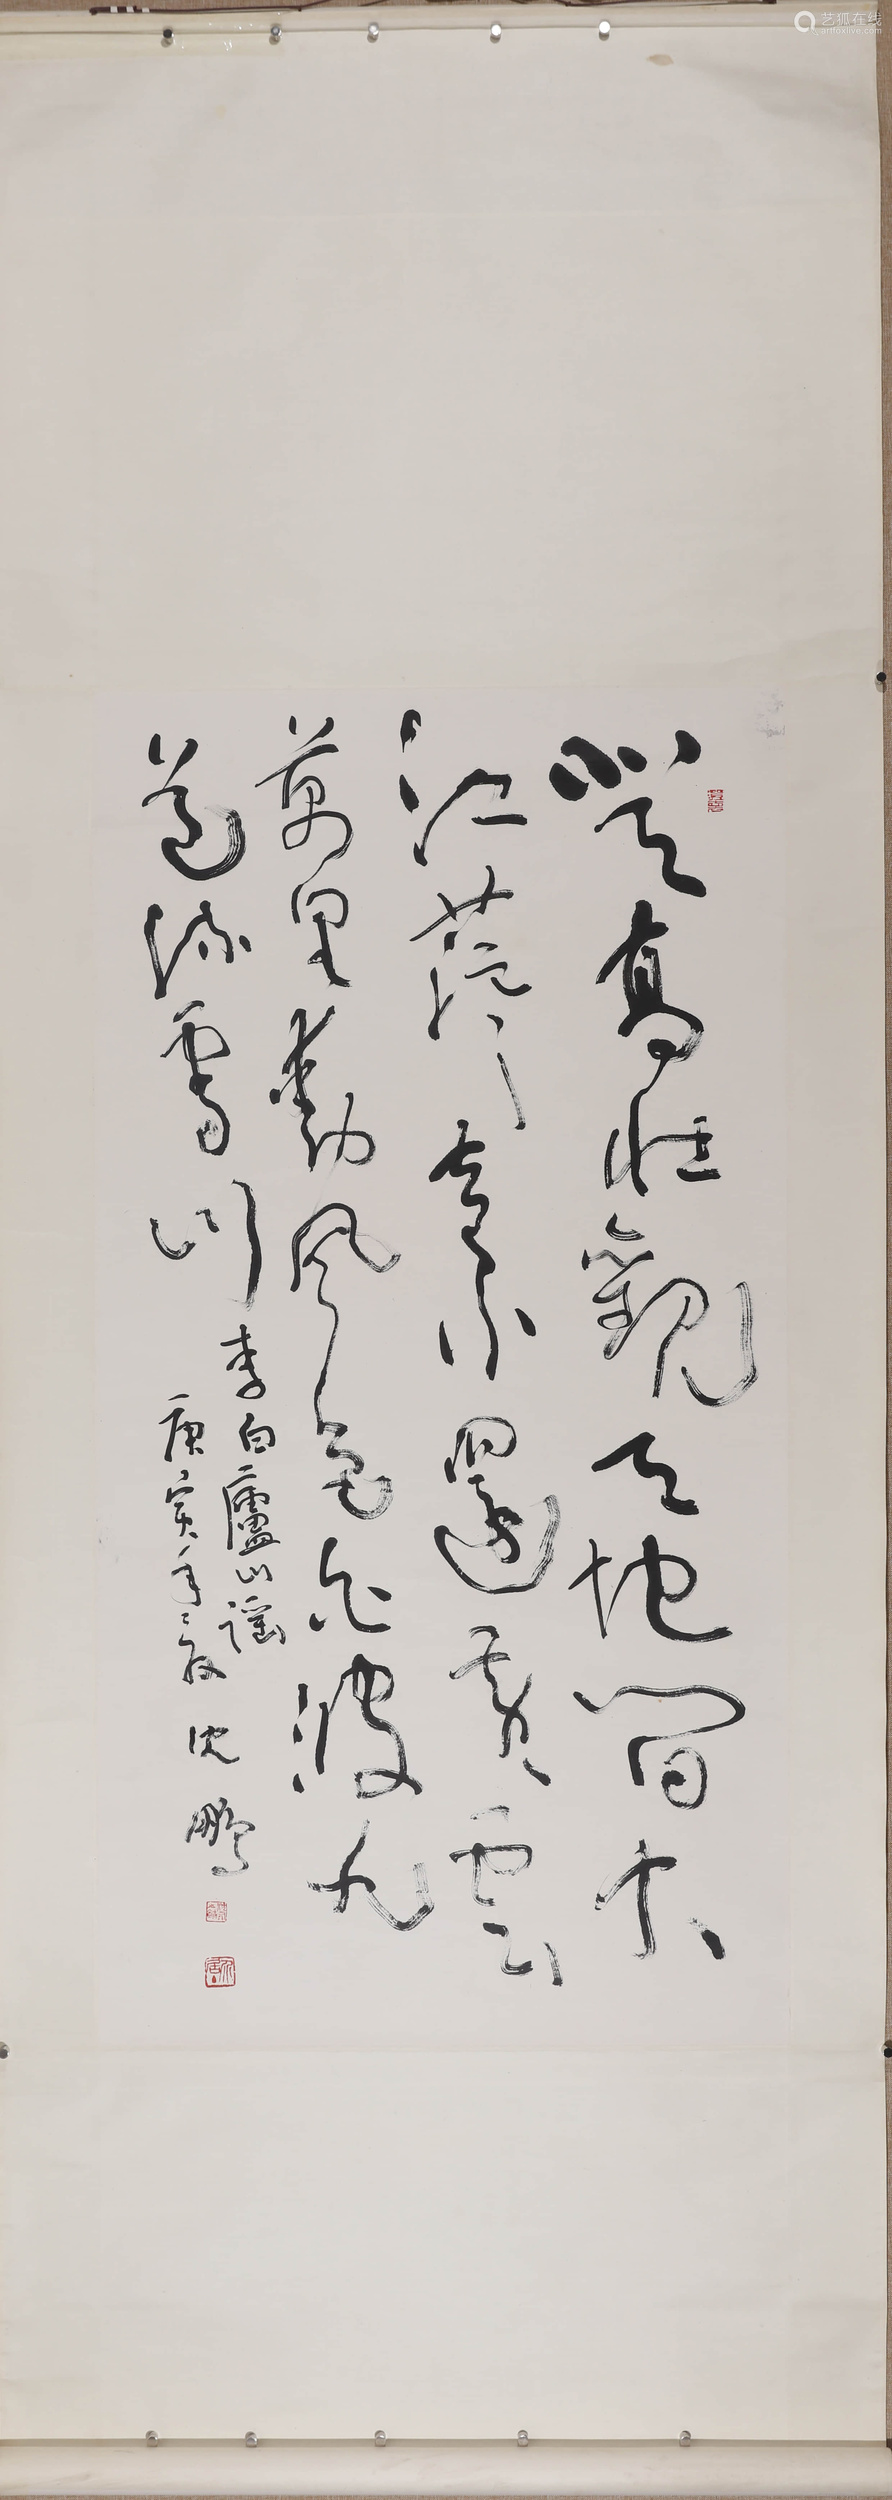 登高壮觀天地間大
江茫〻去不還黄雲
萬里動風色白波九
道流雪山
李白廬山謡
庚寅年 沈鵬
艺狐在线
artfoxlive.com